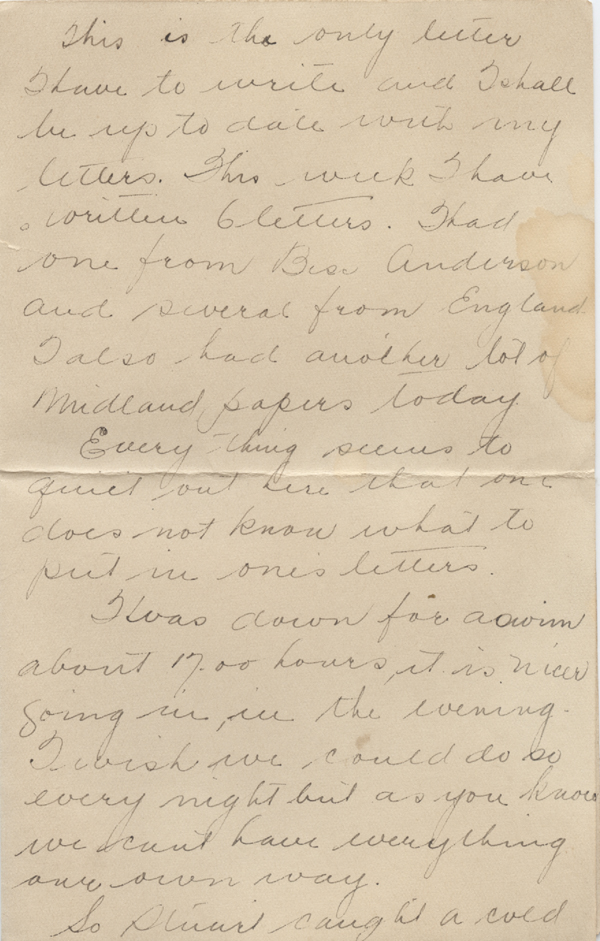 This is the only letter
I have to write and I shall
be up to date with my
letters. This week I have
written 6 letters. I had
one from Bess Anderson
and several from England
I also had another lot of
Midland papers today
Every thing seems to
quiet out here that one
does not know what to
put in one's letters.
I was down for a swim
about 17.00 hours, it is nicer
going in, in the evening.
I wish we could do so
every night but as you know
we can't have everything
our own way.
So Stuart caught a cold